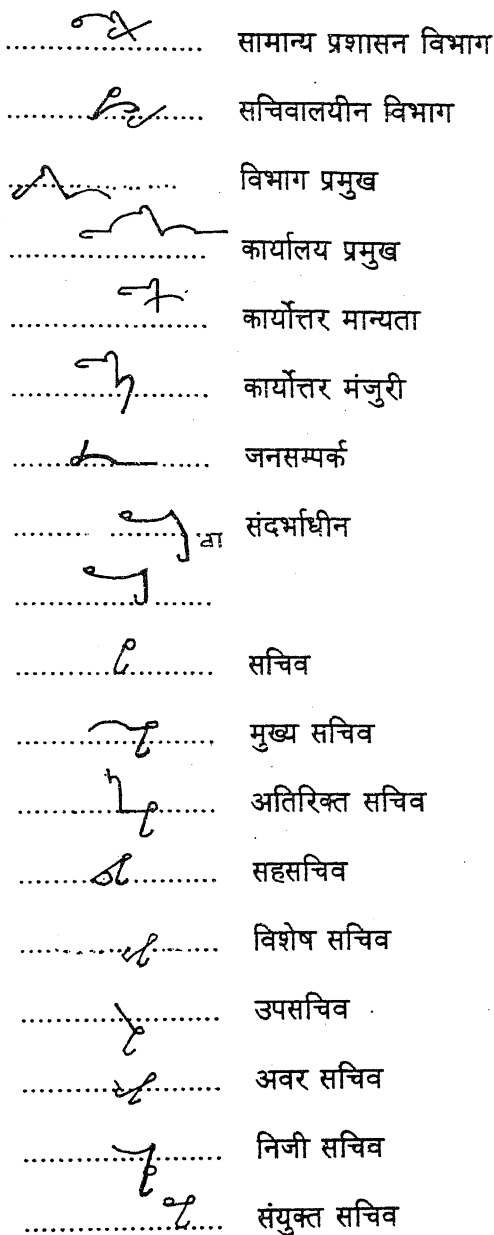 सामान्य प्रशासन विभाग
सचिवालयीन विभाग
विभाग प्रमुख
कार्यालय प्रमुख
कार्योत्तर मान्यता
कार्योत्तर मंजुरी
जनसम्पर्क
वा संदर्भाधीन
सचिव
मुख्य सचिव
अतिरिक्त सचिव
सहसचिव
विशेष सचिव
उपसचिव
अवर सचिव
निजी सचिव
संयुक्त सचिव